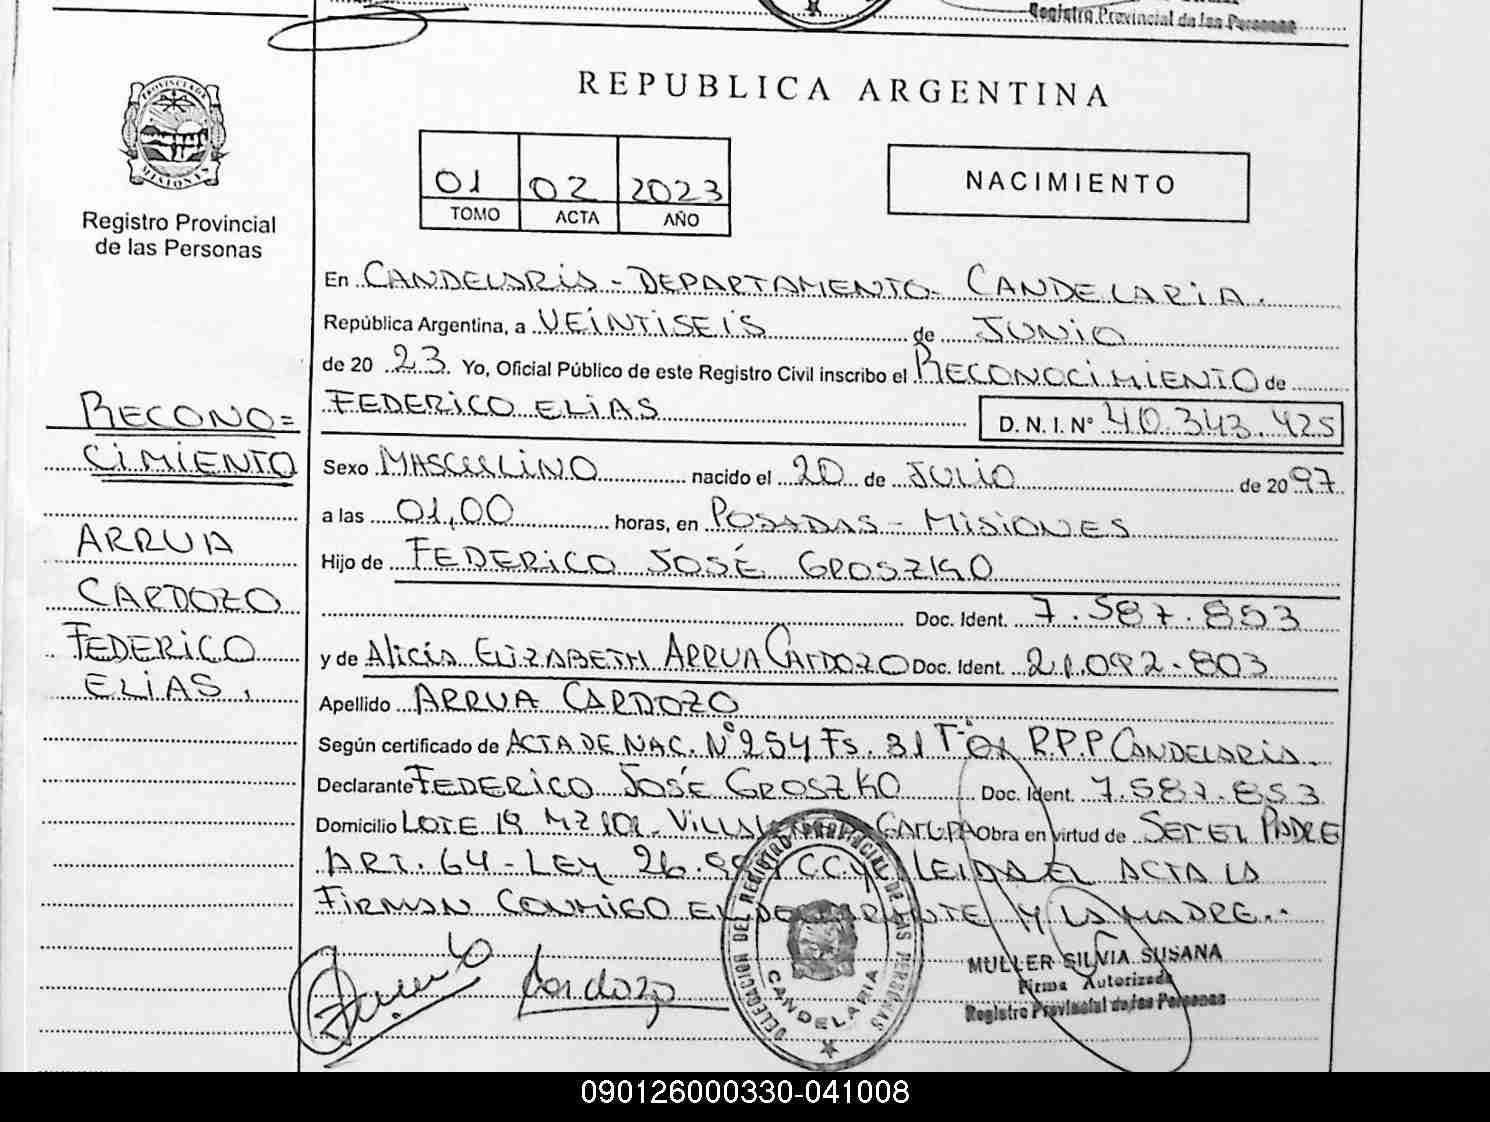 Registro Provincial de las Personas
REPUBLICA ARGENTINA
PROVINCIA DE
MISIONES
Registro Provincial
de las Personas
01 02 2023
TOMO ACTA AÑO
NACIMIENTO
En CANDELARIA - DEPARTAMENTO - CANDELARIA.
República Argentina, a VEINTISEIS de JUNIO
de 20 23. Yo, Oficial Público de este Registro Civil inscribo el RECONOCIMIENTO de
FEDERICO ELIAS D. N. I. Nº 40.343.425
RECONO=
CIMIENTO
ARRUA
CARDOZO
FEDERICO
ELIAS.
Sexo MASCULINO nacido el 20 de JULIO de 20 97
a las 01,00 horas, en POSADAS - MISIONES
Hijo de FEDERICO JOSÉ GROSZKO
Doc. Ident. 7.587.853
y de Alicia ELIZABETH ARRUA CARDOZO Doc. Ident. 21.092.803
Apellido ARRUA CARDOZO
Según certificado de ACTA DE NAC. Nº 254 Fs. 31 Tº 01 R.P.P CANDELARIA.
Declarante FEDERICO JOSÉ GROSZKO Doc. Ident. 7.587.853
Domicilio LOTE 19 MZ 101 - VILLA GARUPA Obra en virtud de SER EL PADRE
ART. 64 - LEY 26.994 CCYC LEIDA EL ACTA LA
FIRMAN CONMIGO EL DECLARANTE Y LA MADRE.-
Cardozo
DELEGACION DEL REGISTRO PROVINCIAL DE LAS PERSONAS
CANDELARIA
MULLER SILVIA SUSANA
Firma Autorizada
Registro Provincial de las Personas
090126000330-041008